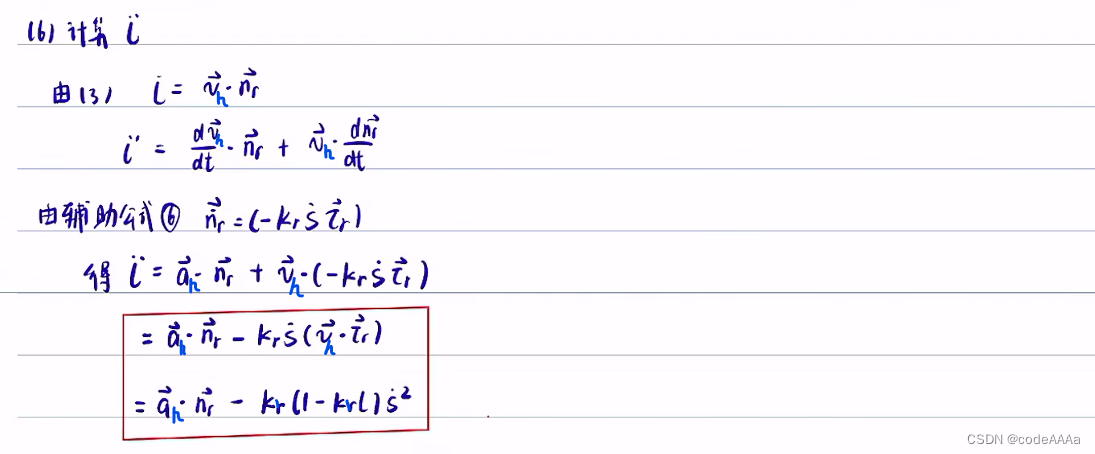 (6) 计算 l̈
由(3) l̇ = v⃗h · n⃗r
l̈ = dv⃗h/dt · n⃗r + v⃗h · dn⃗r/dt
由辅助公式⑥ n⃗̇r = (-kr ṡ τ⃗r)
得 l̈ = a⃗h · n⃗r + v⃗h · (-kr ṡ τ⃗r)
= a⃗h · n⃗r - kr ṡ (v⃗h · τ⃗r)
= a⃗h · n⃗r - kr (1 - kr l) ṡ²
CSDN @codeAAAa